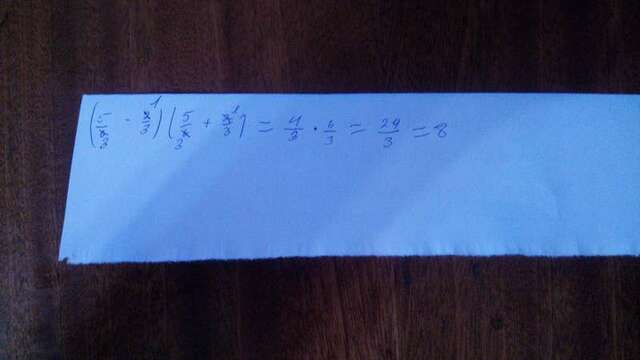 (5/x 3 - x/3 1)(5/x 3 + x/3 1) = 4/3 · 6/3 = 24/3 = 8